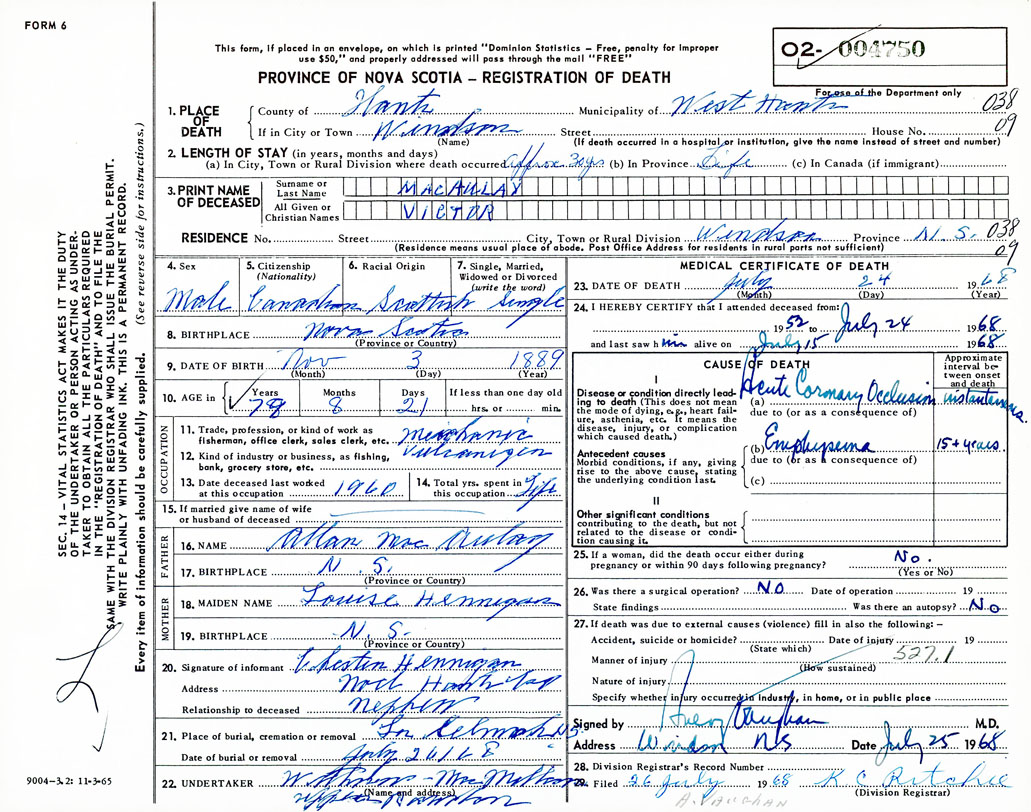 FORM 6
This form, if placed in an envelope, on which is printed "Dominion Statistics – Free, penalty for improper
use $50," and properly addressed will pass through the mail "FREE"
PROVINCE OF NOVA SCOTIA – REGISTRATION OF DEATH
02- 004750
For use of the Department only
038
09
1. PLACE OF DEATH
County of Hants Municipality of West Hants
If in City or Town Windsor Street House No.
(Name) (If death occurred in a hospital or institution, give the name instead of street and number)
2. LENGTH OF STAY (in years, months and days)
(a) In City, Town or Rural Division where death occurred approx 30 yrs (b) In Province Life (c) In Canada (if immigrant)
3. PRINT NAME OF DECEASED
Surname or Last Name MACAULAY
All Given or Christian Names VICTOR
RESIDENCE No. Street City, Town or Rural Division Windsor Province N.S. 038
(Residence means usual place of abode. Post Office Address for residents in rural parts not sufficient) 09
4. Sex Male
5. Citizenship (Nationality) Canadian
6. Racial Origin Scottish
7. Single, Married, Widowed or Divorced (write the word) Single
8. BIRTHPLACE Nova Scotia
(Province or Country)
9. DATE OF BIRTH Nov 3 1889
(Month) (Day) (Year)
10. AGE in Years 78 Months 8 Days 21 If less than one day hrs. or min.
OCCUPATION
11. Trade, profession, or kind of work as fisherman, office clerk, sales clerk, etc. mechanic
12. Kind of industry or business, as fishing, bank, grocery store, etc.
13. Date deceased last worked at this occupation 1960
14. Total yrs. spent in this occupation Life
15. If married give name of wife or husband of deceased
FATHER
16. NAME Allan Mac Aulay
17. BIRTHPLACE N.S.
(Province or Country)
MOTHER
18. MAIDEN NAME Louise Hennigan
19. BIRTHPLACE N.S.
(Province or Country)
20. Signature of informant Hennigan
Address Noel Hants
Relationship to deceased Nephew
21. Place of burial, cremation or removal N.S.
Date of burial or removal July 26/68
22. UNDERTAKER
(Name and address)
MEDICAL CERTIFICATE OF DEATH
23. DATE OF DEATH July 24 1968
(Month) (Day) (Year)
24. I HEREBY CERTIFY that I attended deceased from:
1952 to July 24 1968
and last saw h im alive on July 15 1968
CAUSE OF DEATH
Approximate interval between onset and death
I
Disease or condition directly leading to death (This does not mean the mode of dying, e.g., heart failure, asthenia, etc. it means the disease, injury, or complication which caused death.)
(a) Acute Coronary Occlusion instantaneous.
due to (or as a consequence of)
Antecedent causes
Morbid conditions, if any, giving rise to the above cause, stating the underlying condition last.
(b) Emphysema 15+ years.
due to (or as a consequence of)
(c)
II
Other significant conditions contributing to the death, but not related to the disease or condition causing it.
25. If a woman, did the death occur either during pregnancy or within 90 days following pregnancy? No.
(Yes or No)
26. Was there a surgical operation? NO Date of operation 19
State findings Was there an autopsy? No
27. If death was due to external causes (violence) fill in also the following: –
Accident, suicide or homicide? Date of injury 19
(State which)
527.1
Manner of injury
(How sustained)
Nature of injury
Specify whether injury occurred in industry, in home, or in public place
Signed by Vaughan M.D.
Address Windsor NS Date July 25 1968
28. Division Registrar's Record Number
29. Filed 26 July 1968 K C Ritchie
(Division Registrar)
A. VAUGHAN
SEC. 14 – VITAL STATISTICS ACT MAKES IT THE DUTY
OF THE UNDERTAKER OR PERSON ACTING AS UNDER-
TAKER TO OBTAIN ALL THE PARTICULARS REQUIRED
IN THE "REGISTRATION OF DEATH" AND TO FILE THE
SAME WITH THE DIVISION REGISTRAR WHO SHALL ISSUE THE BURIAL PERMIT.
WRITE PLAINLY WITH UNFADING INK. THIS IS A PERMANENT RECORD.
Every item of information should be carefully supplied. (See reverse side for instructions.)
9004-3.2: 11-3-65